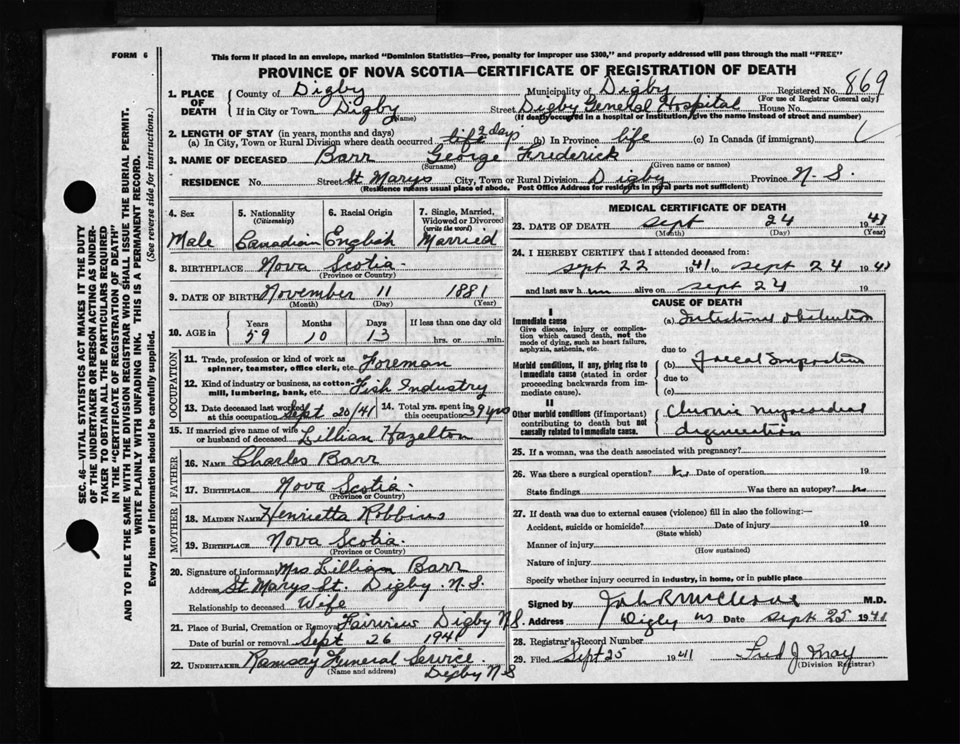 FORM 6
This form if placed in an envelope, marked "Dominion Statistics—Free, penalty for improper use $300," and properly addressed will pass through the mail "FREE"
PROVINCE OF NOVA SCOTIA—CERTIFICATE OF REGISTRATION OF DEATH
SEC. 46—VITAL STATISTICS ACT MAKES IT THE DUTY
OF THE UNDERTAKER OR PERSON ACTING AS UNDER-
TAKER TO OBTAIN ALL THE PARTICULARS REQUIRED
IN THE "CERTIFICATE OF REGISTRATION OF DEATH"
AND TO FILE THE SAME WITH THE DIVISION REGISTRAR WHO SHALL ISSUE THE BURIAL PERMIT.
WRITE PLAINLY WITH UNFADING INK. THIS IS A PERMANENT RECORD.
Every item of information should be carefully supplied. (See reverse side for instructions.)
1. PLACE OF DEATH
County of Digby Municipality of Digby Registered No. 869
(For use of Registrar General only)
If in City or Town Digby Street Digby General Hospital House No.
(Name) (If death occurred in a hospital or institution, give the name instead of street and number)
2. LENGTH OF STAY (in years, months and days)
(a) In City, Town or Rural Division where death occurred life 2 days (b) In Province life (c) In Canada (if immigrant)
3. NAME OF DECEASED Barr George Frederick
(Surname) (Given name or names)
RESIDENCE No. Street St Marys City, Town or Rural Division Digby Province N-S.
(Residence means usual place of abode. Post Office Address for residents in rural parts not sufficient)
4. Sex Male
5. Nationality (Citizenship) Canadian
6. Racial Origin English
7. Single, Married, Widowed or Divorced (write the word) Married
8. BIRTHPLACE Nova Scotia
(Province or Country)
9. DATE OF BIRTH November 11 1881
(Month) (Day) (Year)
10. AGE in Years 59 Months 10 Days 13 If less than one day old hrs. or min.
OCCUPATION
11. Trade, profession or kind of work as spinner, teamster, office clerk, etc. Foreman
12. Kind of industry or business, as cotton-mill, lumbering, bank, etc. Fish Industry
13. Date deceased last worked at this occupation Sept 20/41 14. Total yrs. spent in this occupation 39 yrs
15. If married give name of wife or husband of deceased Lillian Hazelton
FATHER
16. NAME Charles Barr
17. BIRTHPLACE Nova Scotia
(Province or Country)
MOTHER
18. MAIDEN NAME Henrietta Robbins
19. BIRTHPLACE Nova Scotia
(Province or Country)
20. Signature of informant Mrs Lillian Barr
Address St Marys St. Digby. N.S.
Relationship to deceased Wife
21. Place of Burial, Cremation or Removal Fairview Digby N.S.
Date of burial or removal Sept 26 1941
22. UNDERTAKER Ramsay Funeral Service
(Name and address) Digby N S
MEDICAL CERTIFICATE OF DEATH
23. DATE OF DEATH Sept 24 1941
(Month) (Day) (Year)
24. I HEREBY CERTIFY that I attended deceased from:
Sept 22 1941 to Sept 24 1941
and last saw him alive on Sept 24 19
CAUSE OF DEATH
I
Immediate cause (a) Intestinal obstruction
Give disease, injury or complication which caused death, not the mode of dying, such as heart failure, asphyxia, asthenia, etc.
due to
Morbid conditions, if any, giving rise to immediate cause (stated in order proceeding backwards from immediate cause). (b) Faecal Impaction
due to
(c)
II
Other morbid conditions (if important) contributing to death but not causally related to immediate cause. Chronic myocardial degeneration
25. If a woman, was the death associated with pregnancy?
26. Was there a surgical operation? no Date of operation 19
State findings Was there an autopsy? no
27. If death was due to external causes (violence) fill in also the following:—
Accident, suicide or homicide? Date of injury 19
(State which)
Manner of injury
(How sustained)
Nature of injury
Specify whether injury occurred in industry, in home, or in public place
Signed by M.D.
Address Digby NS Date Sept 25 1941
28. Registrar's Record Number
29. Filed Sept 25 1941 Fred J. May
(Division Registrar)